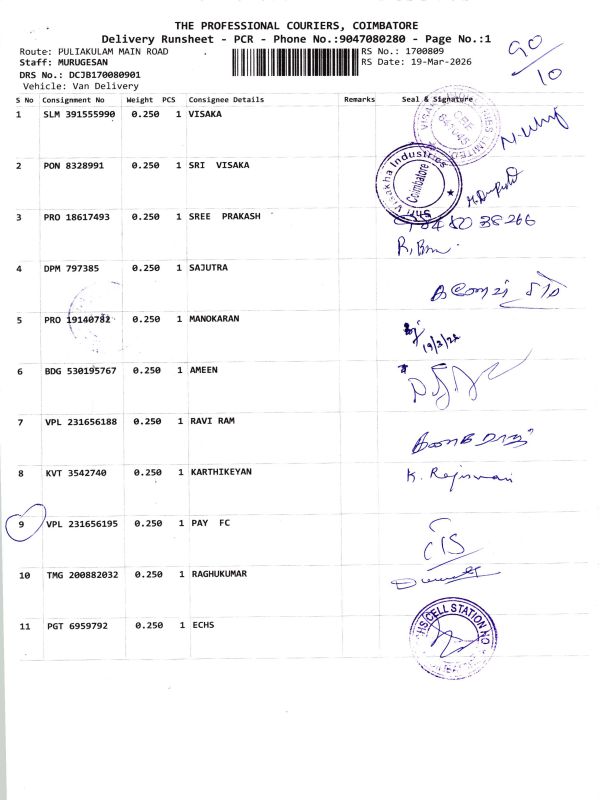 THE PROFESSIONAL COURIERS, COIMBATORE
Delivery Runsheet - PCR - Phone No.:9047080280 - Page No.:1
Route: PULIAKULAM MAIN ROAD RS No.: 1700809
Staff: MURUGESAN RS Date: 19-Mar-2026
DRS No.: DCJB170080901
Vehicle: Van Delivery
90/10
S No Consignment No Weight PCS Consignee Details Remarks Seal & Signature
1 SLM 391555990 0.250 1 VISAKA
2 PON 8328991 0.250 1 SRI VISAKA
Visakha Industries
Coimbatore
3 PRO 18617493 0.250 1 SREE PRAKASH
4 DPM 797385 0.250 1 SAJUTRA
5 PRO 19140782 0.250 1 MANOKARAN
6 BDG 530195767 0.250 1 AMEEN
7 VPL 231656188 0.250 1 RAVI RAM
8 KVT 3542740 0.250 1 KARTHIKEYAN
9 VPL 231656195 0.250 1 PAY FC
10 TMG 200882032 0.250 1 RAGHUKUMAR
11 PGT 6959792 0.250 1 ECHS
CELL STATION